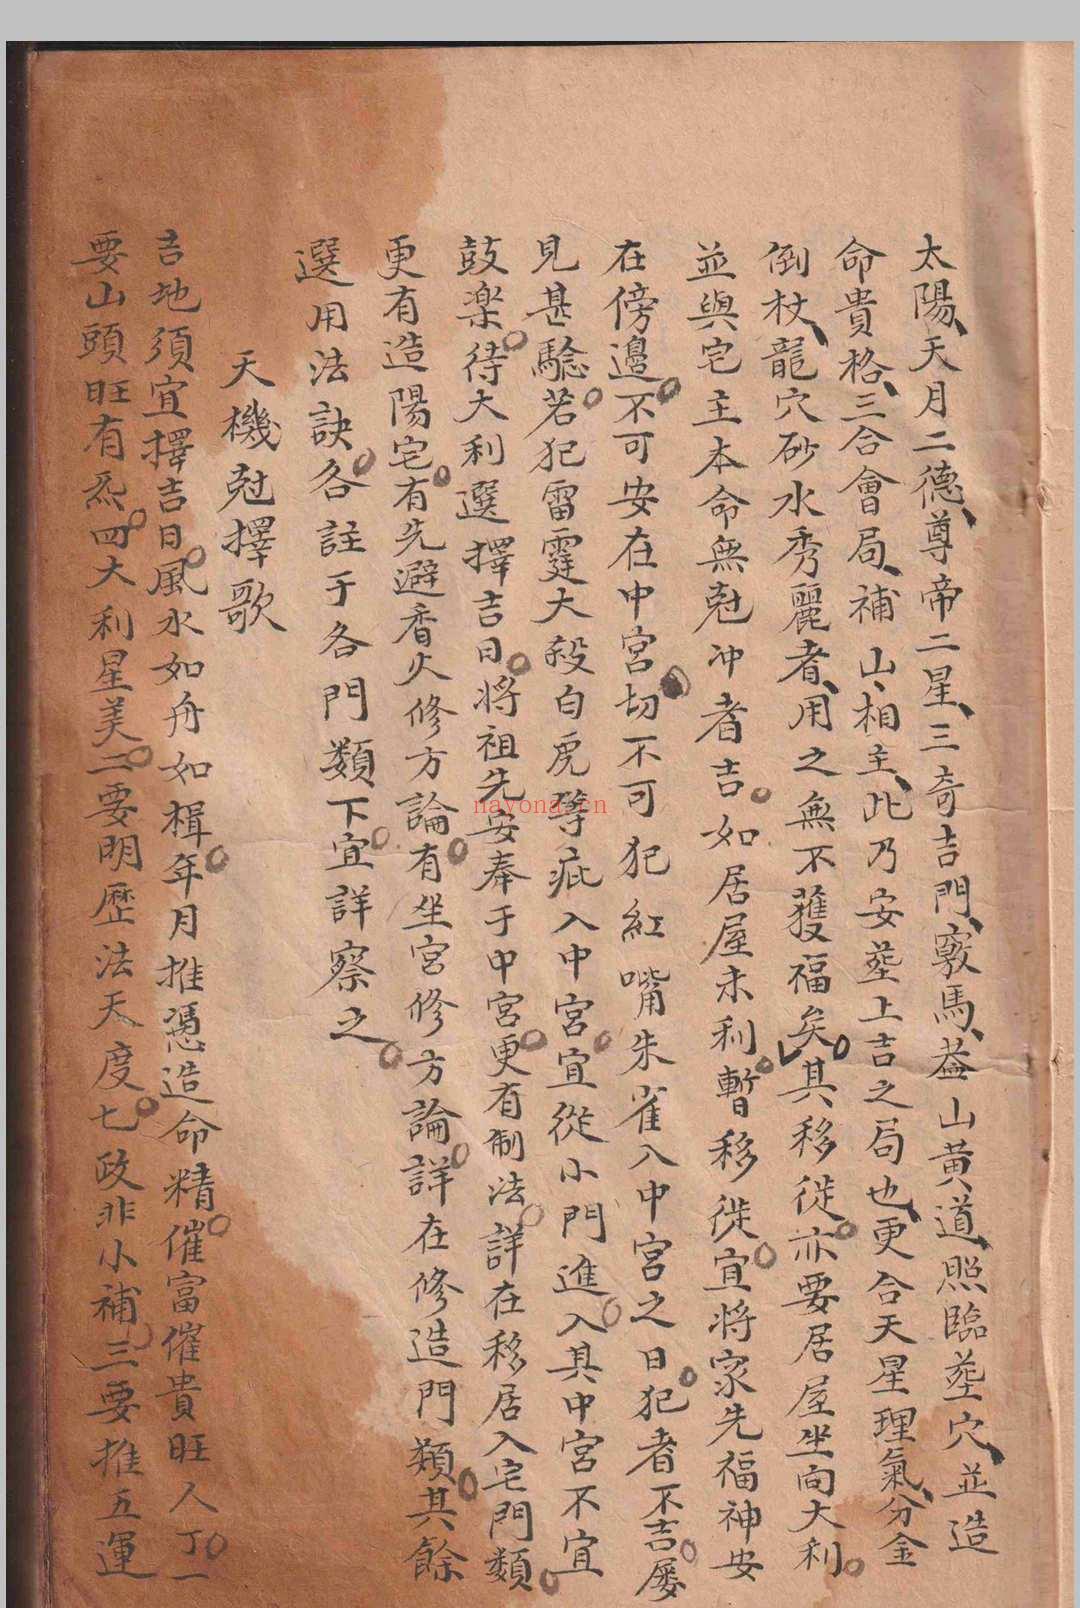 太陽、天月二德、尊帝二星、三奇吉門、竅馬、蓋山黃道、照臨塟穴、並造
命貴格、三合會局、補山、相主、此乃安塟上吉之局也、更合天星理氣、分金
倒杖、龍穴砂水秀麗者、用之無不獲福矣。其移徙。亦要居屋坐向大利。
並與宅主本命無尅冲者吉。如居屋未利。暫移徙。宜將家先福神安
在傍邊。不可安在中宮。切不可犯紅嘴朱雀入中宮之日。犯者不吉。屡
見甚驗。若犯雷霆大殺白虎等疵入中宮。宜從小門進入。其中宮不宜
鼓楽。待大利選擇吉日。將祖先安奉于中宮。更有制法。詳在移居入宅門類。
更有造陽宅。有先避香火修方論。有坐宮修方論。詳在修造門類。其餘
選用法訣。各註于各門類下。宜詳察之。
天機尅擇歌
吉地須宜擇吉日。風水如舟如楫。年月推憑造命精。催富催貴旺人丁。一
要山頭旺有炁。四大利星美。二要明歷法天度。七政非小補。三要推五運
nayona.cn